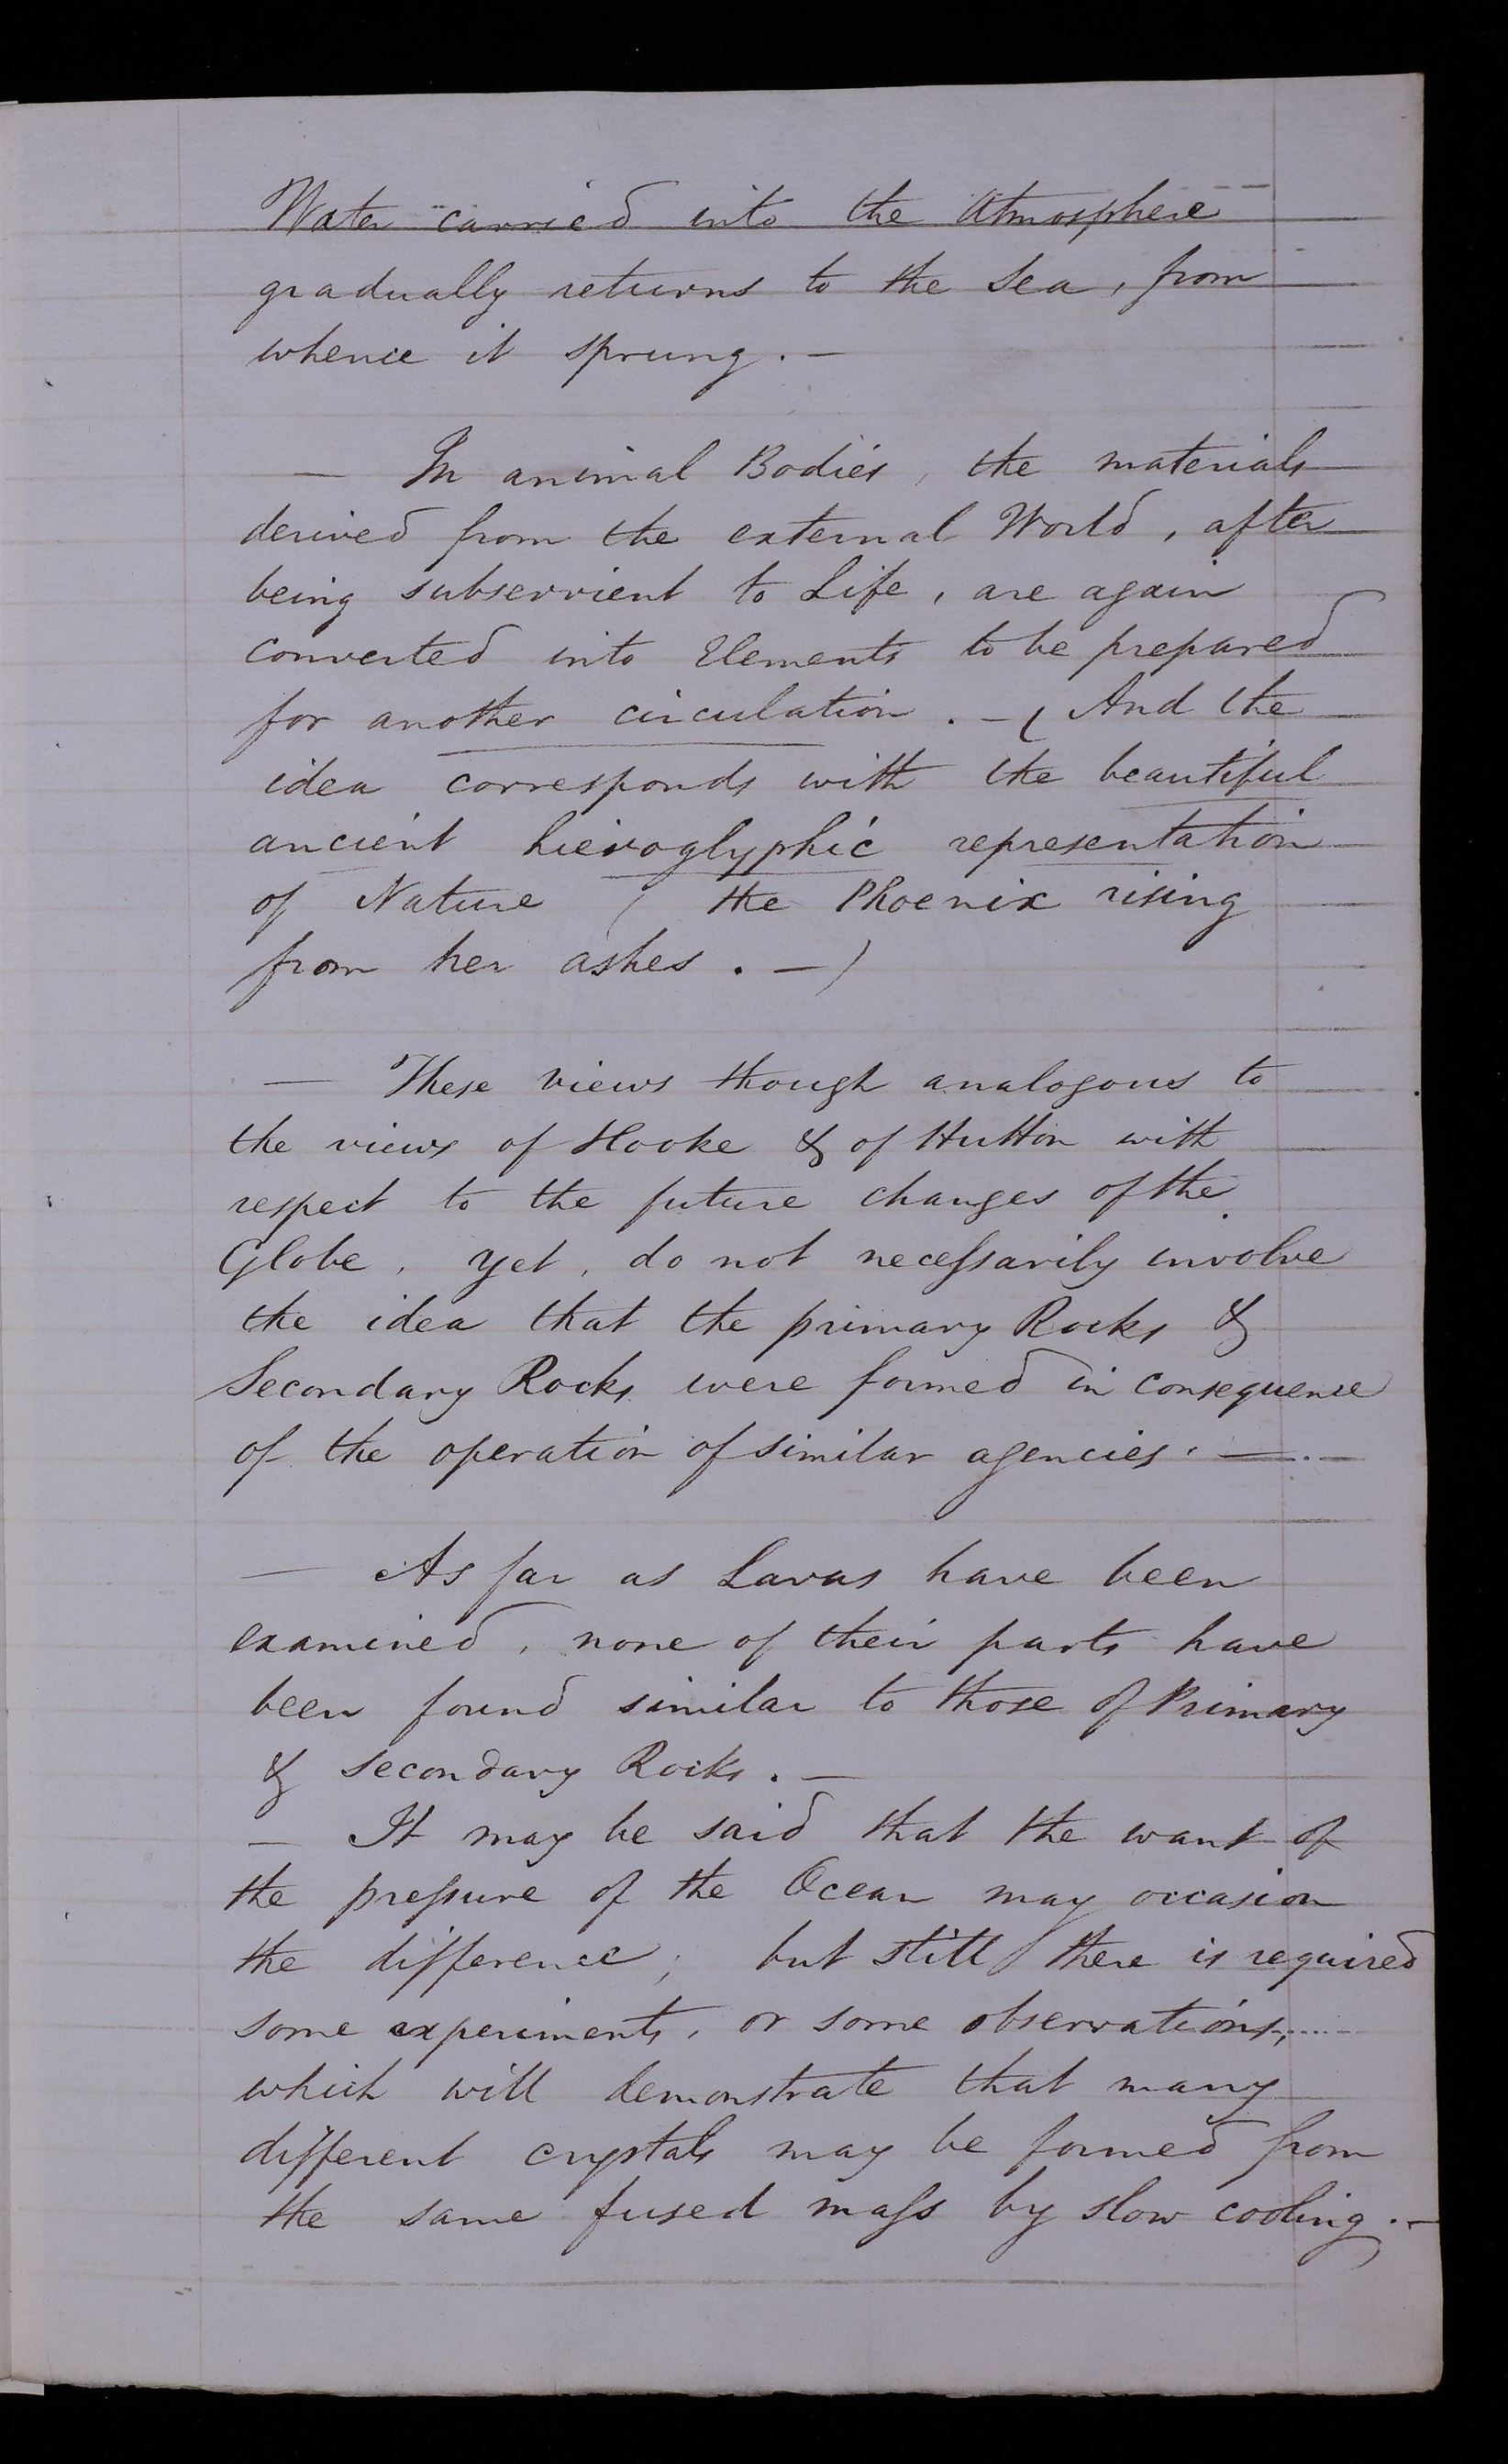 Water carried into the Atmosphere
gradually returns to the Sea, from
whence it sprung. —
— In animal Bodies, the materials
derived from the external World, after
being subservient to Life, are again
converted into Elements to be prepared
for another circulation. — ( And the
idea corresponds with the beautiful
ancient hieroglyphic representation
of Nature ( the Phoenix rising
from her ashes. — )
— These views though analogous to
the views of Hooke & of Hutton with
respect to the future changes of the
Globe, yet, do not necessarily involve
the idea that the primary Rocks &
Secondary Rocks were formed in consequence
of the operation of similar agencies. —
— As far as Lavas have been
examined, none of their parts have
been found similar to those of Primary
& Secondary Rocks. —
— It may be said that the want of
the pressure of the Ocean may occasion
the difference; but still there is required
some experiments, or some observations,
which will demonstrate that many
different crystals may be formed from
the same fused mass by slow cooling. —